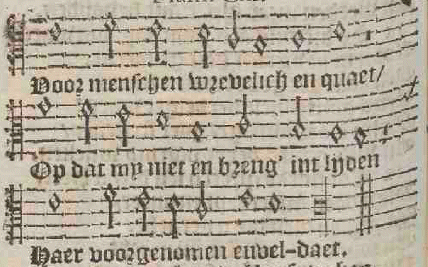 Voor menschen wrevelich en quaet/
Op dat my niet en breng' int lyden
Haer voorgenomen euvel-daet.